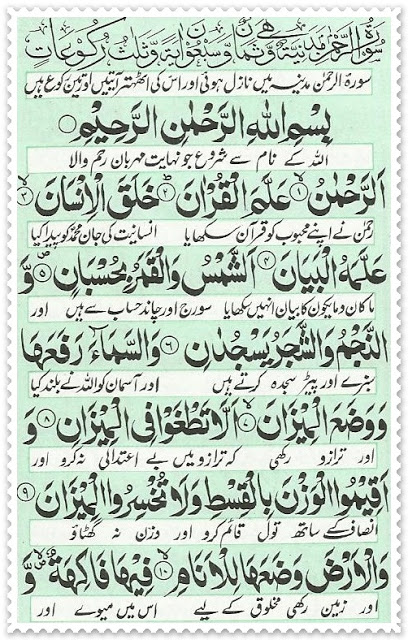 سُوْرَةُ الرَّحْمٰنِ مَدَنِیَّةٌ وَّهِیَ ثَمَانٌ وَّسَبْعُوْنَ اٰیَةً وَّثَلٰثُ رُكُوْعَاتٍ
سورۃ الرحمٰن مدینہ میں نازل ہوئی اور اس کی اٹھتر آیتیں اور تین رکوع ہیں
بِسْمِ اللّٰهِ الرَّحْمٰنِ الرَّحِیْمِ
اللہ کے نام سے شروع جو نہایت مہربان رحم والا
اَلرَّحْمٰنُ ۙ﴿۱﴾ عَلَّمَ الْقُرْاٰنَ ؕ﴿۲﴾ خَلَقَ الْاِنْسَانَ ۙ﴿۳﴾
رحمٰن نے اپنے محبوب کو قرآن سکھایا انسانیت کی جان محمد کو پیدا کیا
عَلَّمَهُ الْبَیَانَ ﴿۴﴾ اَلشَّمْسُ وَالْقَمَرُ بِحُسْبَانٍ ﴿۵﴾ وَّ
ماکان ومایکون کا بیان انہیں سکھایا سورج اور چاند حساب سے ہیں اور
النَّجْمُ وَالشَّجَرُ یَسْجُدٰنِ ﴿۶﴾ وَالسَّمَآءَ رَفَعَهَا
سبزے اور پیڑ سجدہ کرتے ہیں اور آسمان کو اللہ نے بلند کیا
وَوَضَعَ الْمِیْزَانَ ۙ﴿۷﴾ اَلَّا تَطْغَوْا فِی الْمِیْزَانِ ﴿۸﴾ وَ
اور ترازو رکھی کہ ترازو میں بے اعتدالی نہ کرو اور
اَقِیْمُوا الْوَزْنَ بِالْقِسْطِ وَلَا تُخْسِرُوا الْمِیْزَانَ ﴿۹﴾
انصاف کے ساتھ تول قائم کرو اور وزن نہ گھٹاؤ
وَالْاَرْضَ وَضَعَهَا لِلْاَنَامِ ﴿۱۰﴾ فِیْهَا فَاكِهَةٌ وَّ
اور زمین رکھی مخلوق کے لیے اس میں میوے اور